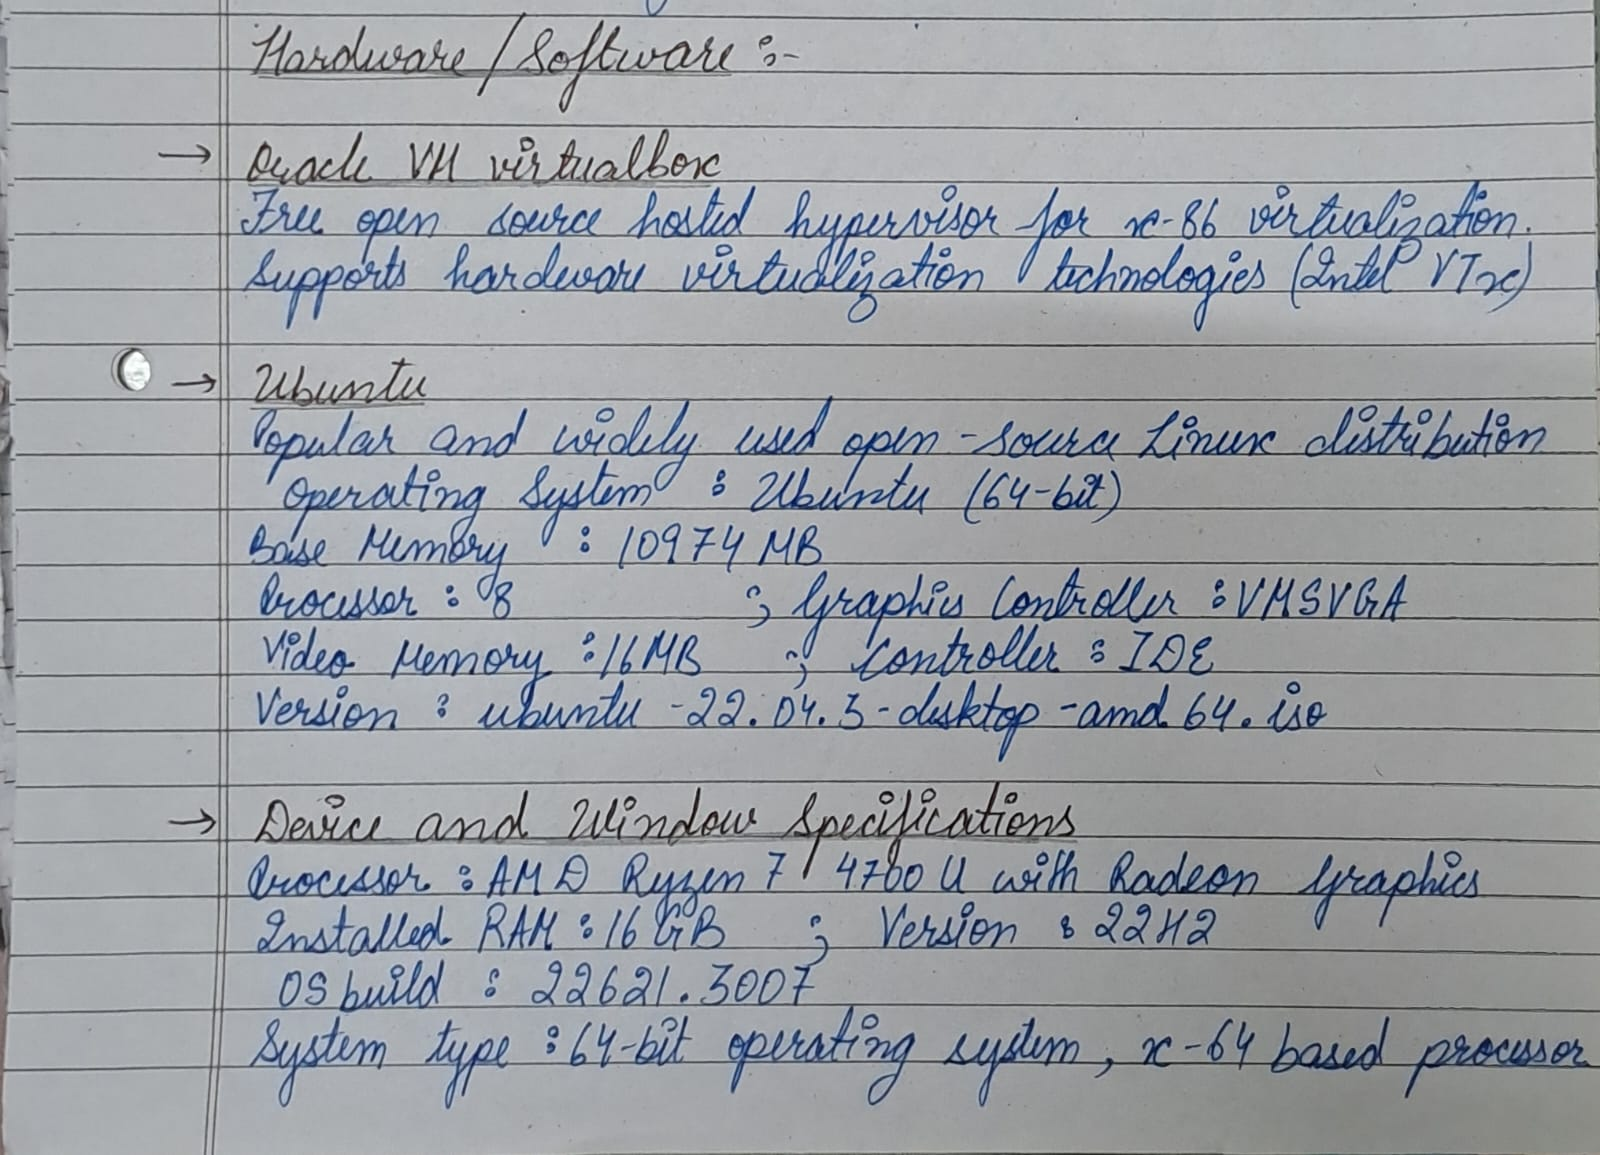 Hardware/Software :-
→ Oracle VM virtualbox
Free open source hosted hypervisor for x-86 virtualization.
Supports hardware virtualization technologies (Intel VTx)
→ Ubuntu
Popular and widely used open-source Linux distribution
Operating System : Ubuntu (64-bit)
Base Memory : 10974 MB
Processor : 8 ; Graphics Controller : VMSVGA
Video Memory : 16MB ; Controller : IDE
Version : ubuntu-22.04.3-desktop-amd64.iso
→ Device and Window Specifications
Processor : AMD Ryzen 7 4700U with Radeon Graphics
Installed RAM : 16 GB ; Version : 22H2
OS build : 22621.3007
System type : 64-bit operating system, x-64 based processor